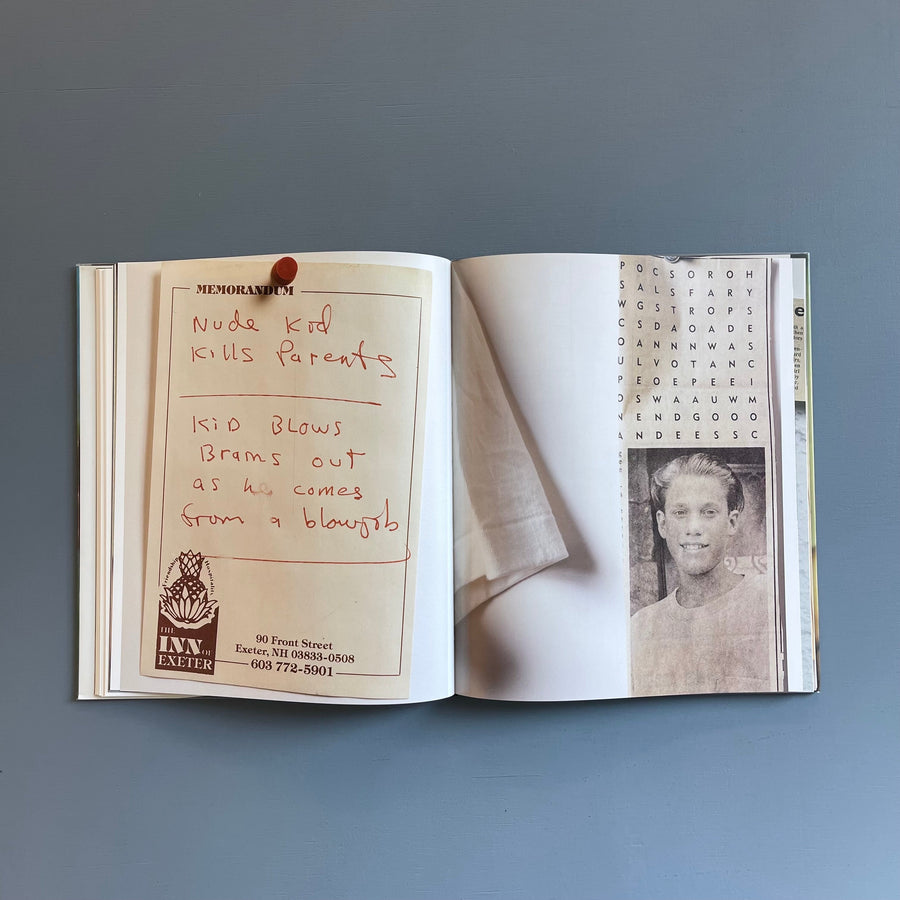 MEMORANDUM
Nude Kid
Kills Parents
KiD BLOWS
Brains out
as he comes
from a blowjob
Friendship Hospitality
THE
INN OF
EXETER
90 Front Street
Exeter, NH 03833-0508
603 772-5901
P O C S O R O H
S A L S F A R Y
W G S T R O P S
D S W A A U W M
N E N D G O O O
A N D E E S S C
e